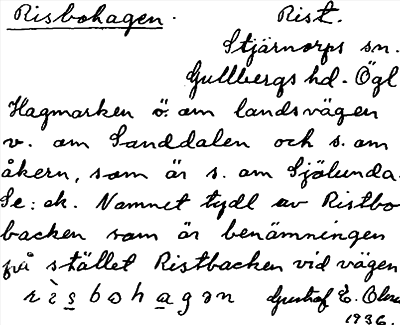 Risbohagen. Rist.
Stjärnorps sn.
Gullbergs hd. Ögl
Hagmarken ö. om landsvägen
v. om Sanddalen och s. om
åkern, som är s. om Själunda.
Se: ek. Namnet tydl av Ristbo
backen som är benämningen
på stället Ristbacken vid vägen
rìsbohagən Gustaf E. 
1936.